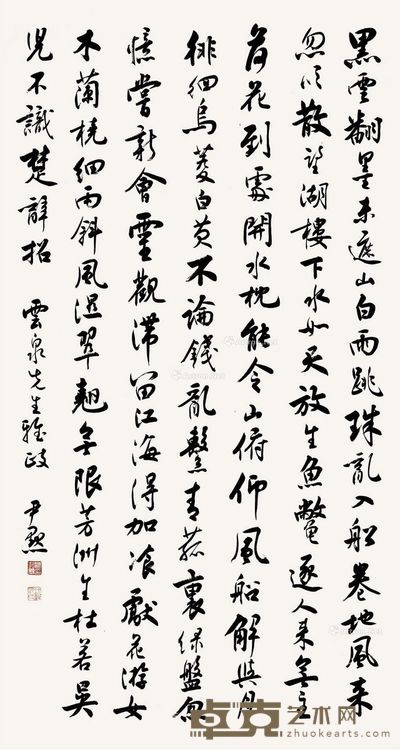 黑雲翻墨未遮山白雨跳珠亂入船卷地風來
忽吹散望湖樓下水如天放生魚鼈逐人來無主
荷花到處開水枕能令山俯仰風船解與月
徘徊烏菱白芡不論錢亂繫青菰裹綠盤忽
憶嘗新會靈觀滯留江海得加飡獻花游女
木蘭橈細雨斜風濕翠翹無限芳洲生杜若吳
兒不識楚辭招 雲泉先生雅政 尹默
卓克艺术网
www.zhuokearts.com